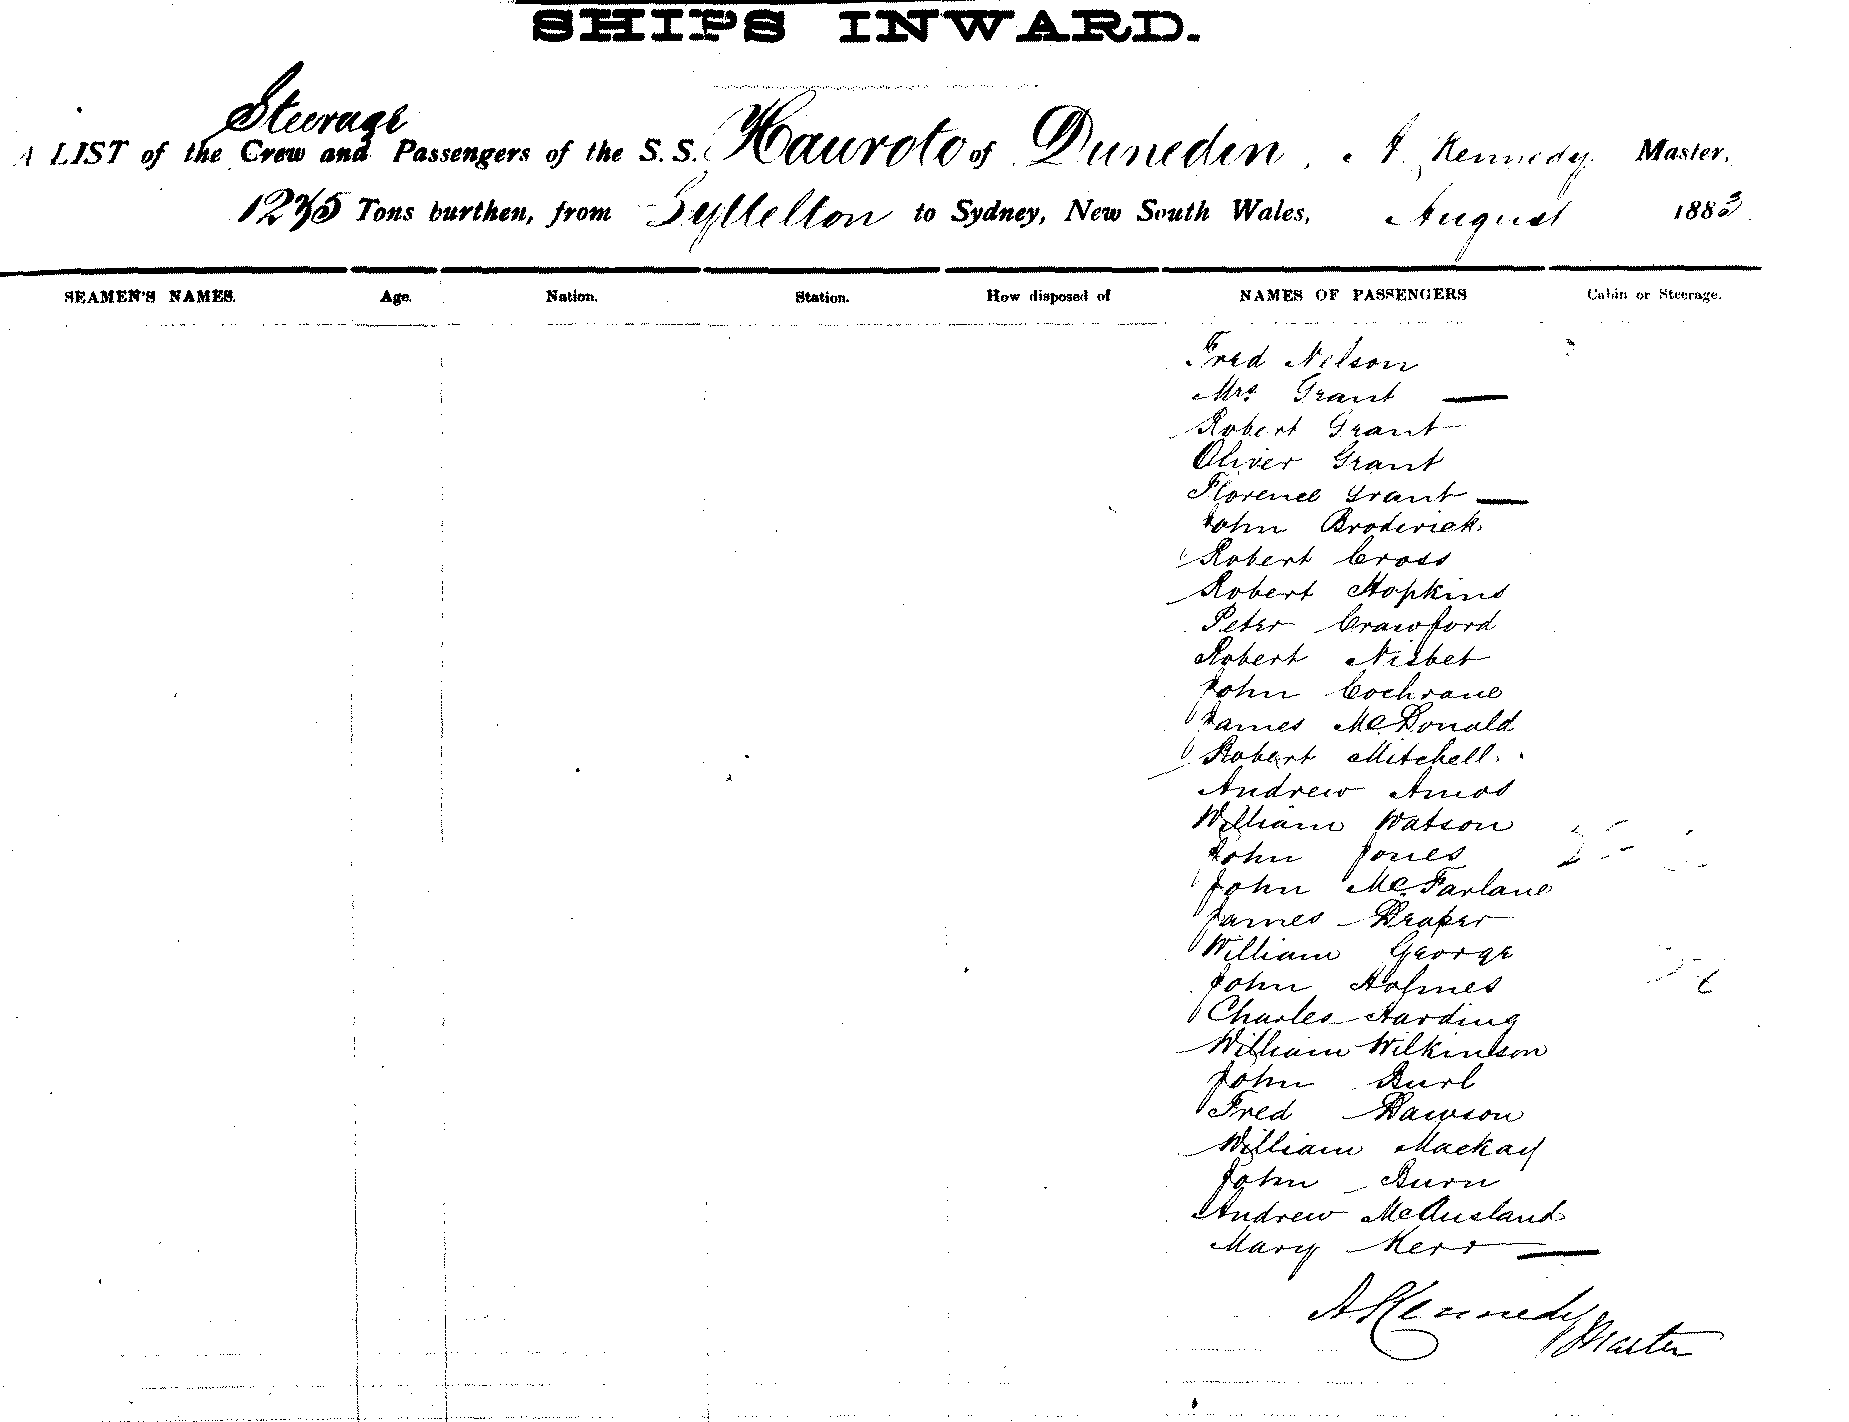 SHIPS INWARD.
Steerage
A LIST of the Crew and Passengers of the S. S. Hauroto of Dunedin, A. Kennedy Master,
Tons burthen, from Lyttelton to Sydney, New South Wales, August 1883
SEAMEN'S NAMES. Age. Nation. Station. How disposed of NAMES OF PASSENGERS Cabin or Steerage.
Fred Nelson
Mrs Grant —
Robert Grant
Oliver Grant
Florence Grant —
John Broderick
Robert Cross
Robert Hopkins
Peter Crawford
Robert Nisbet
John Cochrane
James McDonald
Robert Mitchell
Andrew Amos
William Watson
John Jones
John McFarlane
James Draper
William George
John Holmes
Charles Harding
William Wilkinson
John Burl
Fred Dawson
William Mackay
John Burn
Andrew McAusland
Mary Kerr —
A Kennedy
Master